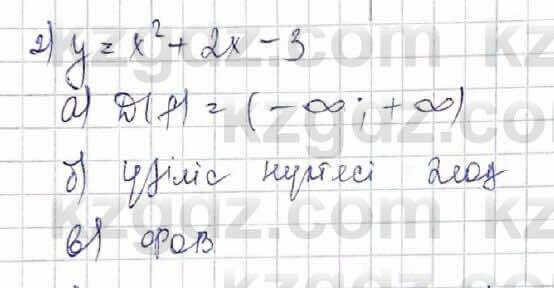 2) y = x² + 2x - 3
а) D(f) = (-∞; +∞)
б) үзіліс нүктесі жоқ
в)
kzgdz.com